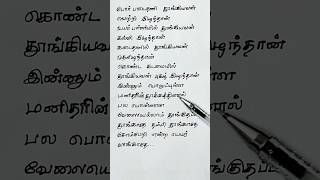 போர் படைதனில் தூங்கியவன்
வெற்றி இழந்தான்
உயர் பள்ளியில் தூங்கியவன்
கல்வி இழந்தான்
கடைதனில் தூங்கியவன்
முதல் இழந்தான்
கொண்ட கடமையில்
தூங்கியவன் புகழ் இழந்தான்
இன்னும் பொறுப்புள்ள
மனிதரின் தூக்கத்தினால்
பல பொன்னான
வேலையெல்லாம் தூங்குதப்பா
தூங்காதே தம்பி தூங்காதே
சோம்பேறி என்ற பெயர்
வாங்காதே